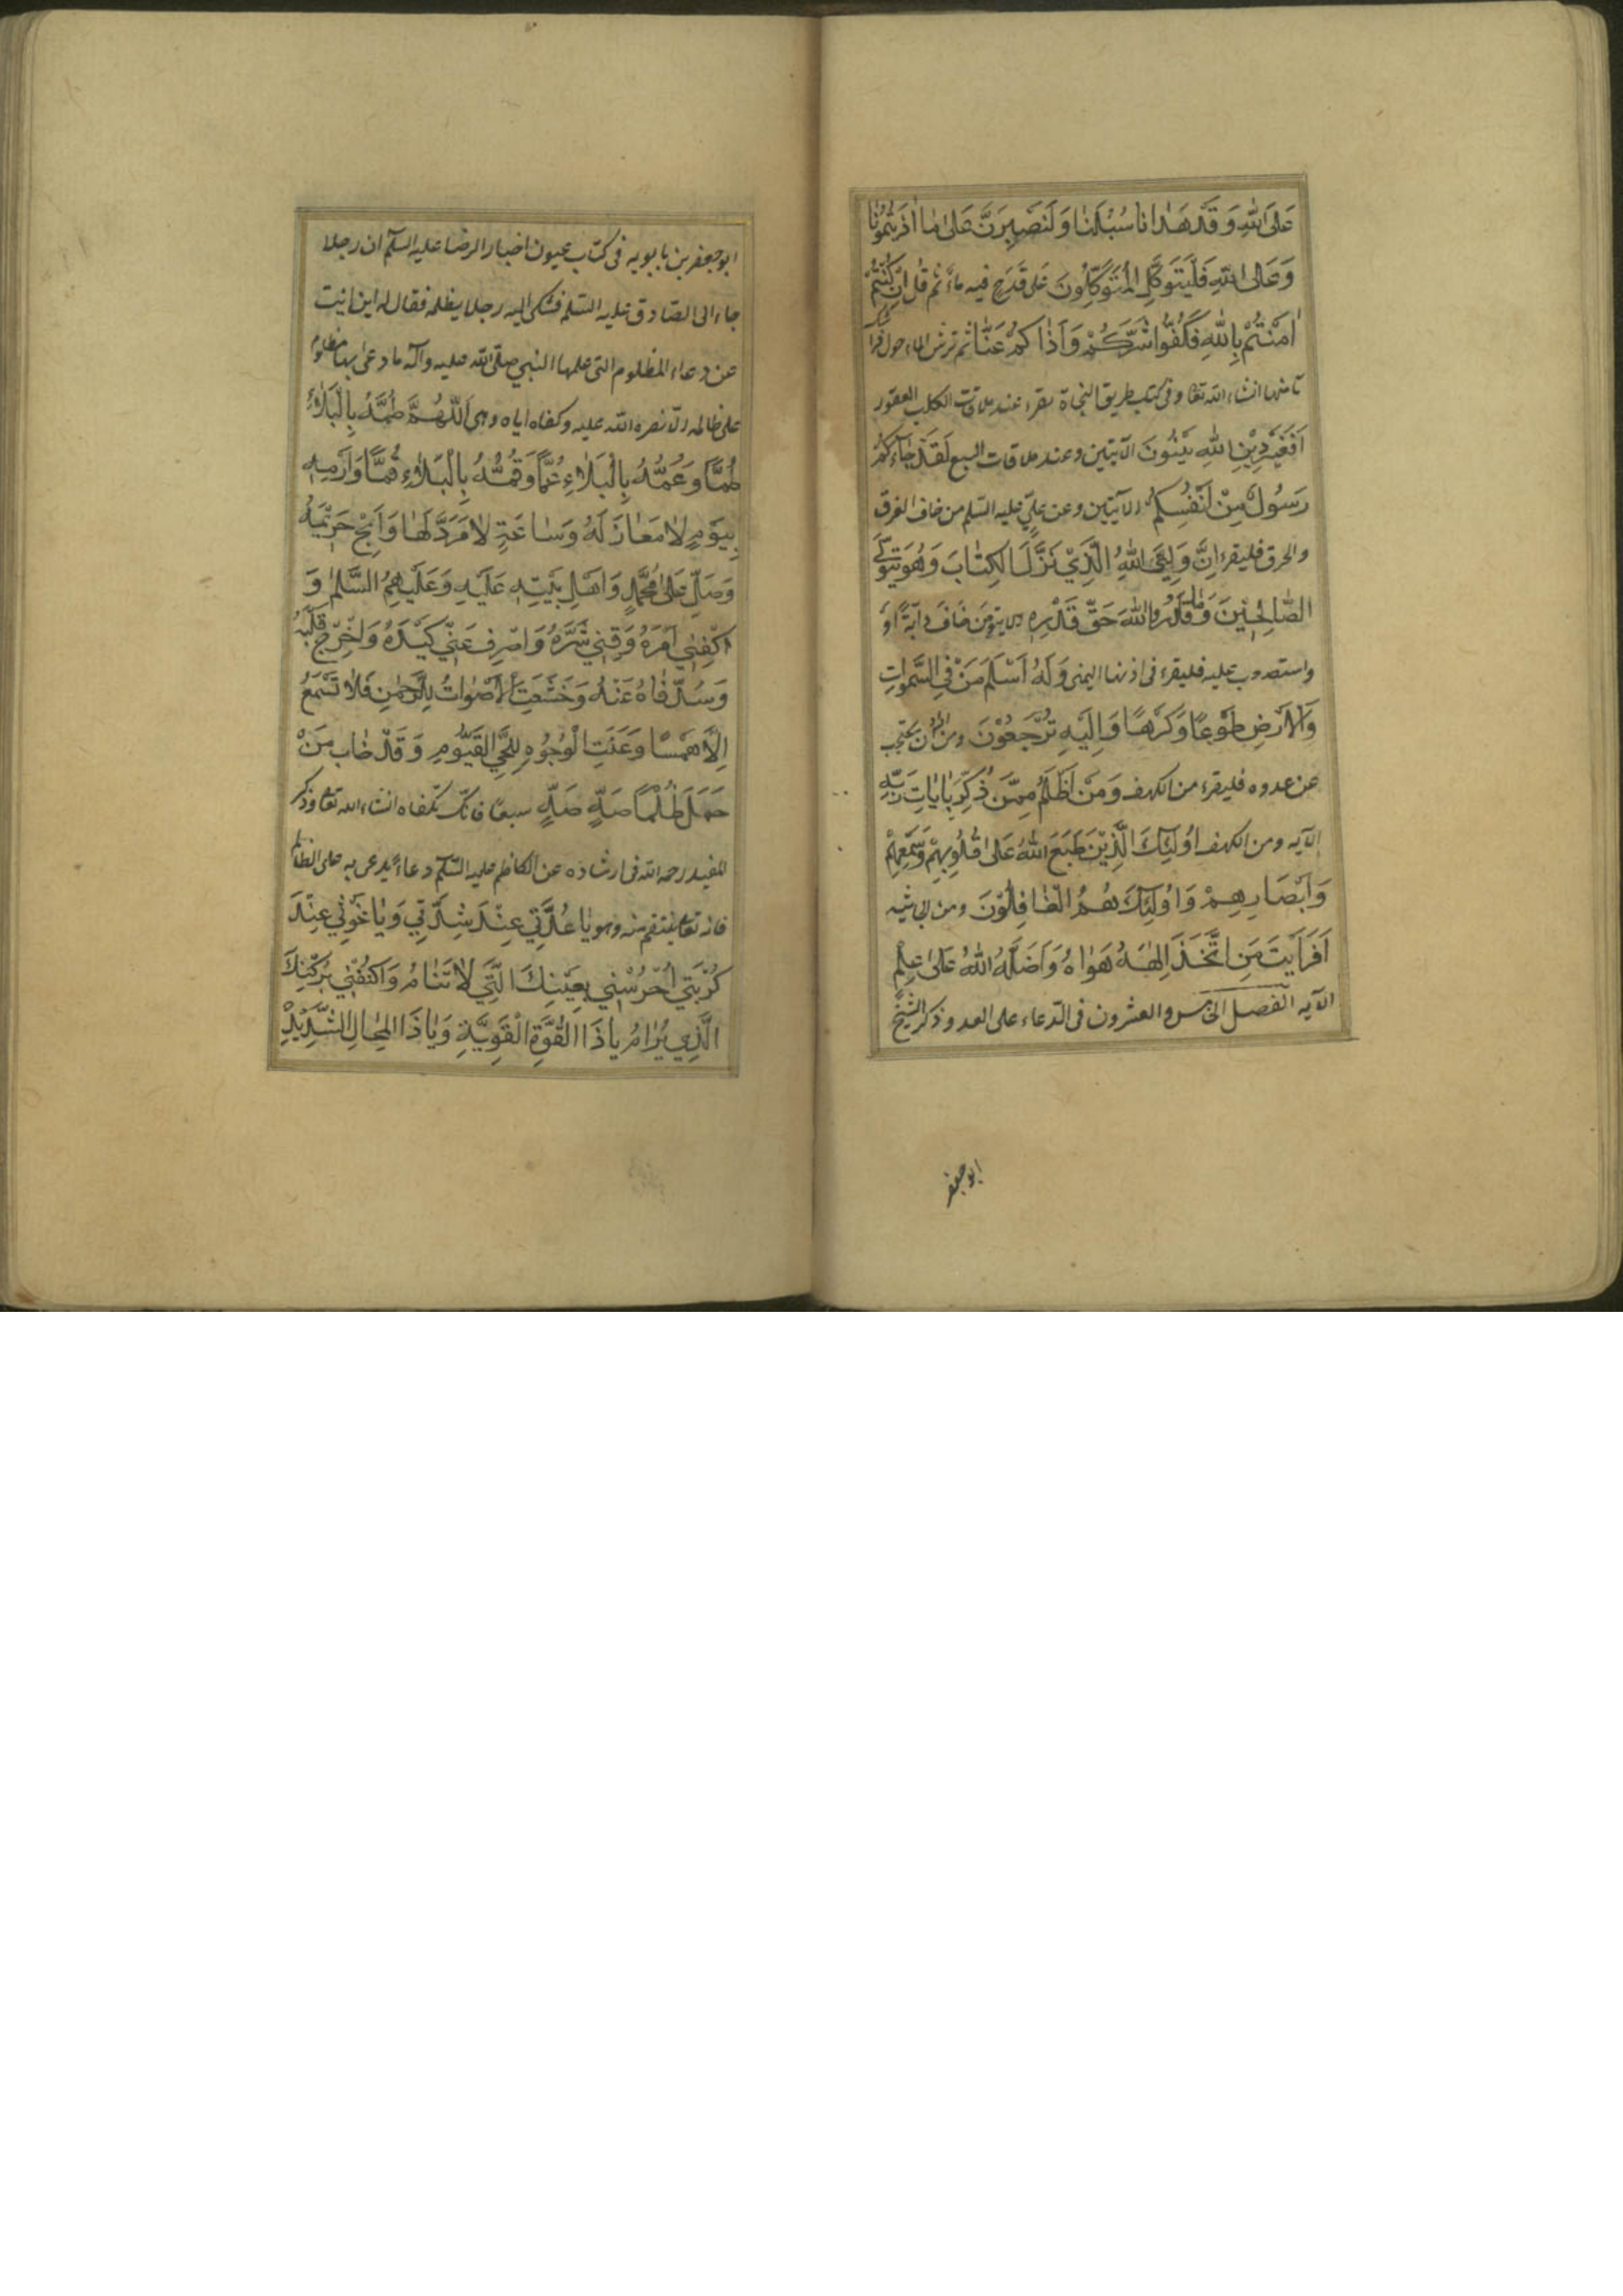 عَلَى اللّٰهِ وَ قَدْ هَدٰانٰا سُبُلَنٰا وَ لَنَصْبِرَنَّ عَلىٰ مٰا اٰذَيْتُمُونٰا
وَ عَلَى اللّٰهِ فَلْيَتَوَكَّلِ الْمُتَوَكِّلُونَ على قدح فيه ماء ثم قل اِنْ كُنْتُمْ
اٰمَنْتُمْ بِاللّٰهِ فَكُفُّوا شَرَّكُمْ وَ اَذٰاكُمْ عَنّٰا ثم ترش الماء حول فراشك
تامنها انشاء الله تعا و فى كتاب طريق النجاة يقرء عند ملاقات الكلب العقور
اَفَغَيْرَ دِيْنِ اللّٰهِ يَبْغُونَ الآيتين و عند ملاقات السبع لَقَدْ جٰاءَكُمْ
رَسُولٌ مِنْ اَنْفُسِكُمْ الآيتين و عن علىّ عليه السّلم من خاف الغرق
و الحرق فليقرء اِنَّ وَلِيِّىَ اللّٰهُ الَّذِيْ نَزَّلَ الْكِتٰابَ وَ هُوَ يَتَوَلَّى
الصّٰالِحِيْنَ وَ مٰا قَدَرُوا اللّٰهَ حَقَّ قَدْرِهِ الآية و من خاف دآبّة او
و استصعب عليه فليقرء فى اذنها اليمنى وَ لَهُ اَسْلَمَ مَنْ فِى السَّمٰوٰاتِ
وَ الْاَرْضِ طَوْعًا وَ كَرْهًا وَ اِلَيْهِ تُرْجَعُوْنَ و من اراد ان يحتجب
عن عدوه فليقرء من الكهف وَ مَنْ اَظْلَمُ مِمَّنْ ذُكِّرَ بِاٰيٰاتِ رَبِّهِ
الآيه و من الكهف اُولٰئِكَ الَّذِيْنَ طَبَعَ اللّٰهُ عَلىٰ قُلُوبِهِمْ وَ سَمْعِهِمْ
وَ اَبْصَارِهِمْ وَ اُولٰئِكَ هُمُ الْغٰافِلُوْنَ و من الجاثيه
اَفَرَاَيْتَ مَنِ اتَّخَذَ اِلٰهَهُ هَوٰاهُ وَ اَضَلَّهُ اللّٰهُ عَلىٰ عِلْمٍ
الآيه الفصل الخامس و العشرون فى الدّعاء على العدو ذكر الشيخ
ابو جعفر
ابو جعفر بن بابويه فى كتاب عيون اخبار الرضا عليه السلم ان رجلا
جاء الى الصّادق عليه السّلم فشكى اليه رجلا يظلمه فقال له اين انت
عن دعاء المظلوم التى علمها النبي صلّى الله عليه و آله ما دعى بها مظلوم
على ظالمه الّا نصره الله عليه و كفاه اياه و هى اَللّٰهُمَّ طُمَّهُ بِالْبَلٰاءِ
طَمًّا وَ عُمَّهُ بِالْبَلٰاءِ عَمًّا وَ قُمَّهُ بِالْبَلٰاءِ قَمًّا وَ اَرْمِهِ
بِيَوْمٍ لٰا مَعٰاذَ لَهُ وَ سٰاعَةٍ لٰا مَرَدَّ لَهٰا وَ اَبِحْ حَرِيْمَهُ
وَ صَلِّ عَلىٰ مُحَمَّدٍ وَ اَهْلِ بَيْتِهِ عَلَيْهِ وَ عَلَيْهِمُ السَّلٰمُ وَ
اكْفِنِي اَمْرَهُ وَ قِنِي شَرَّهُ وَ اصْرِفْ عَنِّي كَيْدَهُ وَ اَحْرِجْ قَلْبَهُ
وَ سُدَّ فٰاهُ عَنْهُ وَ خَشَعَتِ الْاَصْوٰاتُ لِلرَّحْمٰنِ فَلٰا تَسْمَعُ
اِلّٰا هَمْسًا وَ عَنَتِ الْوُجُوْهُ لِلْحَيِّ الْقَيُّومِ وَ قَدْ خٰابَ مَنْ
حَمَلَ ظُلْمًا صَهٍ صَهٍ سبعًا فانّك تكفاه انشاء الله تعا و ذكر
المفيد رحمه الله فى ارشاده عن الكاظم عليه السّلم دعاء يدعى به على الظالم
فانه تعا ينتقم منه و هو يٰا عُدَّتِي عِنْدَ شِدَّتِي وَ يٰا غَوْثِي عِنْدَ
كُرْبَتِي اُحْرُسْنِي بِعَيْنِكَ الَّتِي لٰا تَنٰامُ وَ اكْنُفْنِي بِرُكْنِكَ
الَّذِي يُرٰامُ يٰا ذَا الْقُوَّةِ الْقَوِيَّةِ وَ يٰا ذَا الْمِحٰالِ الشَّدِيْدِ